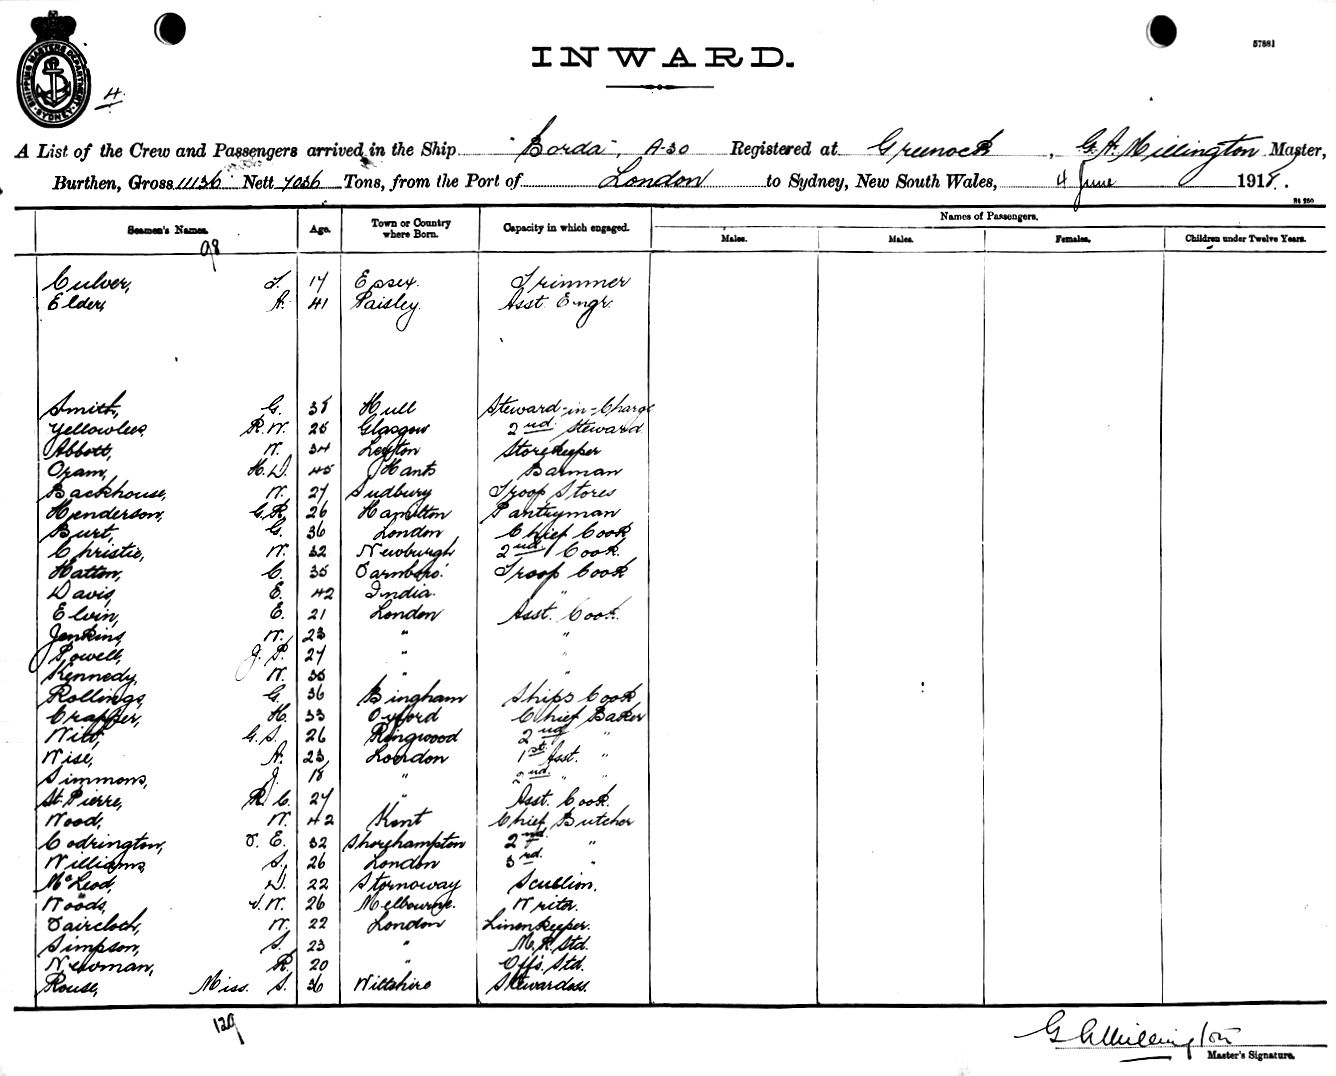 57881
SHIPPING MASTERS DEPARTMENT SYDNEY
4
INWARD.
A List of the Crew and Passengers arrived in the Ship "Borda", A-30 Registered at Greenock, G.A. Millington Master,
Burthen, Gross 11136 Nett 7036 Tons, from the Port of London to Sydney, New South Wales, 4 June 1918.
Seamen's Names. Age. Town or Country where Born. Capacity in which engaged. Names of Passengers.
Males. Males. Females. Children under Twelve Years.
98
Culver, T. 17 Essex. Trimmer
Elder, A. 41 Paisley. Asst Engr.
Smith, G. 38 Hull Steward-in-Charge
Yellowlees R.W. 25 Glasgow 2nd. Steward
Abbott, W. 34 Leyton Storekeeper
Oram, H.D. 45 Hants Barman
Backhouse, W. 27 Sudbury Troop Stores
Henderson, G.R. 26 Hamilton Pantryman
Burt, G. 36 London Chief Cook
Christie, W. 32 Newburgh 2nd. Cook.
Hatton, C. 35 Farnboro' Troop Cook
Davis, E. 42 India. "
Elvin, E. 21 London Asst. Cook.
Jenkins, W. 23 " "
Powell, J.P. 27 " "
Kennedy, W. 35 " "
Rollings, G. 36 Bingham Ships Cook
Crapper, H. 33 Oxford Chief Baker
Witt, G.S. 26 Ringwood 2nd "
Wise, A. 23 London 1st Asst. "
Simmons, J. 18 " 2nd. " "
St. Pierre, R.C. 27 " Asst. Cook.
Wood, W. 42 Kent Chief Butcher
Codrington, F.E. 32 2nd "
Williams, S. 26 London 3rd. "
McLeod, D. 22 Stornoway Scullion.
Woods, W. 26 Melbourne. Writer.
Faircloth, W. 22 London Linenkeeper.
Simpson, S. 23 " M.R. Std.
Newman, R. 20 " Offs. Std.
Rouse, Miss. S. 36 Wiltshire Stewardess.
129
G A Millington
Master's Signature.